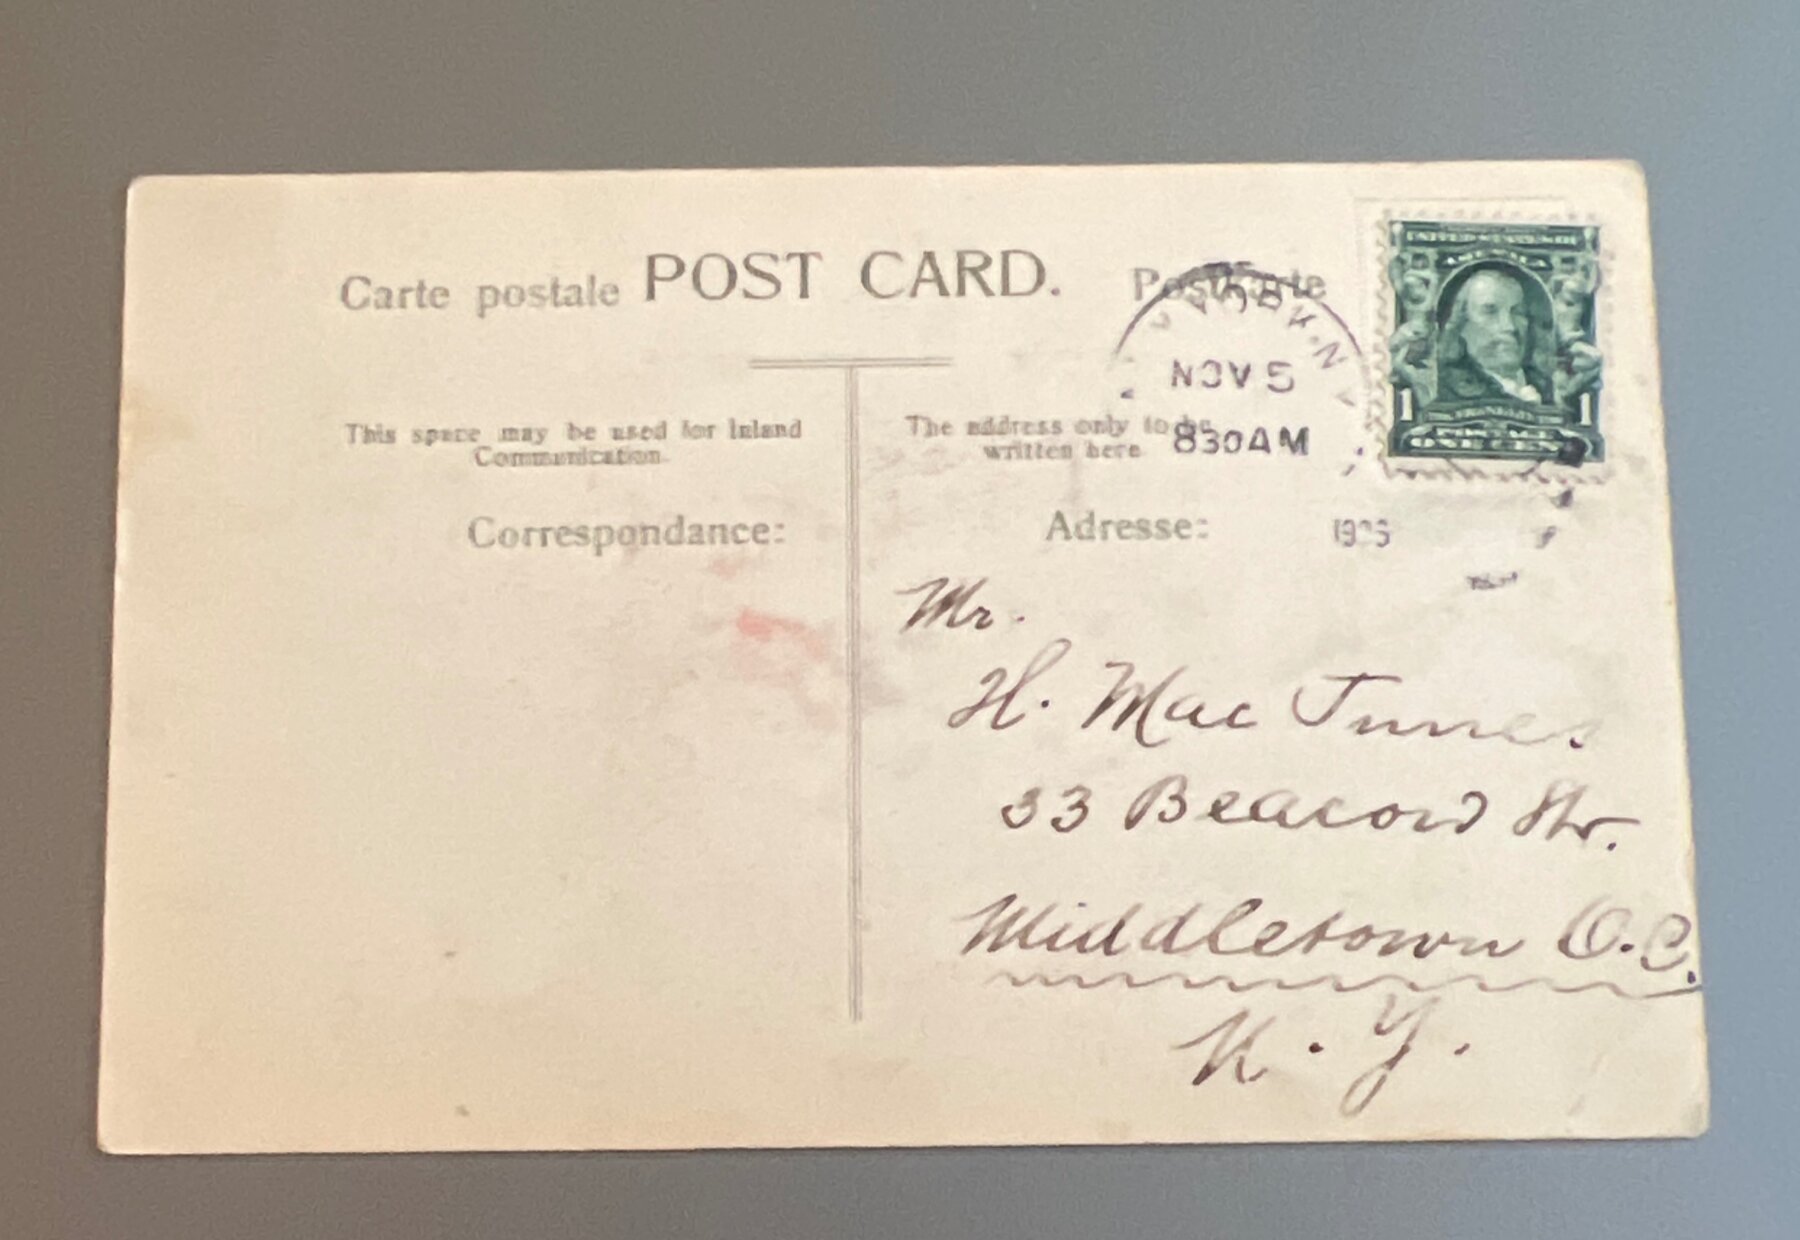 Carte postale POST CARD. Postkarte
YORK, N.Y.
NOV 5
830 AM
1906
UNITED STATES OF
AMERICA
1 1
FRANKLIN
POSTAGE
ONE CENT
This space may be used for Inland
Communication
Correspondance:
The address only to be
written here
Adresse:
Mr.
H. Mac Innes
33 Beacon Str.
Middletown O.C.
N.Y.